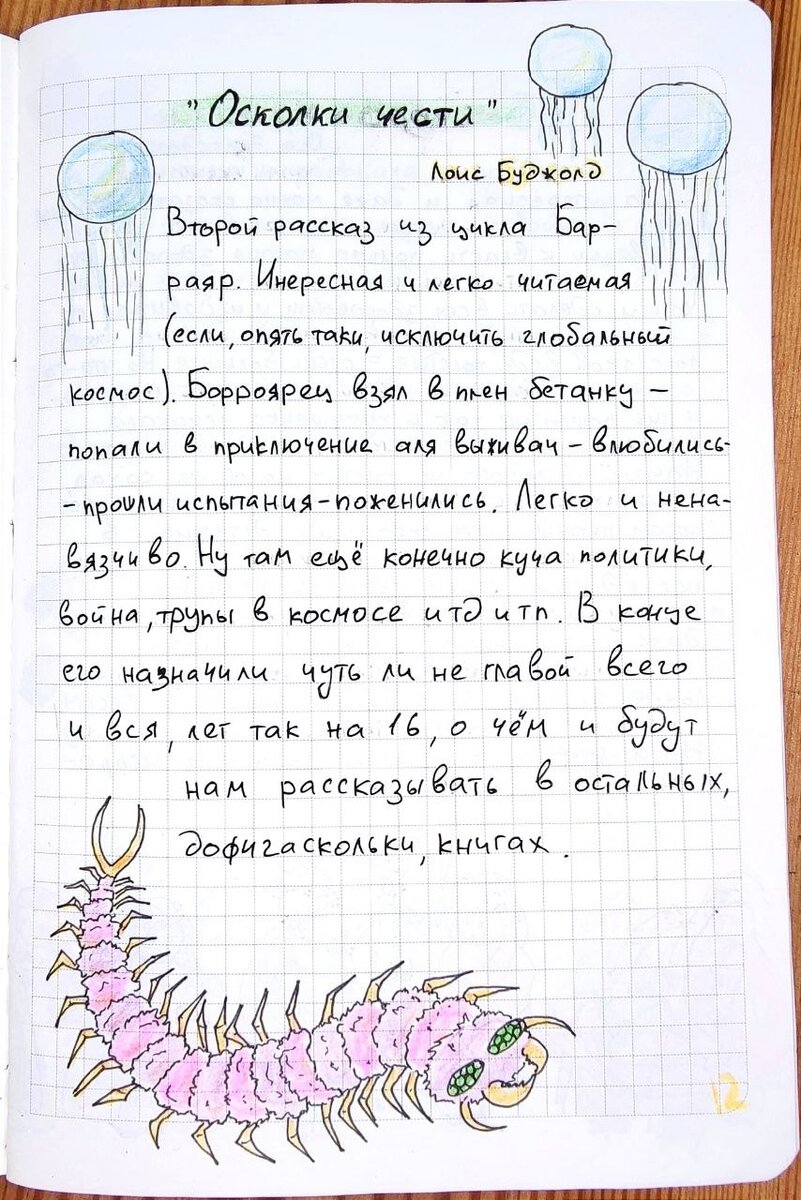 "Осколки чести"
Лоис Буджолд
Второй рассказ из цикла Бар-
раяр. Инересная и легко читаемая
(если, опять таки, исключить глобальный
космос). Борроярец взял в плен бетанку –
попали в приключение аля выживач – влюбились-
-прошли испытания-поженились. Легко и нена-
вязчиво. Ну там ещё конечно куча политики,
война, трупы в космосе итд итп. В конце
его назначили чуть ли не главой всего
и вся, лет так на 16, о чём и будут
нам рассказывать в остальных,
дофигаскольки, книгах.
12